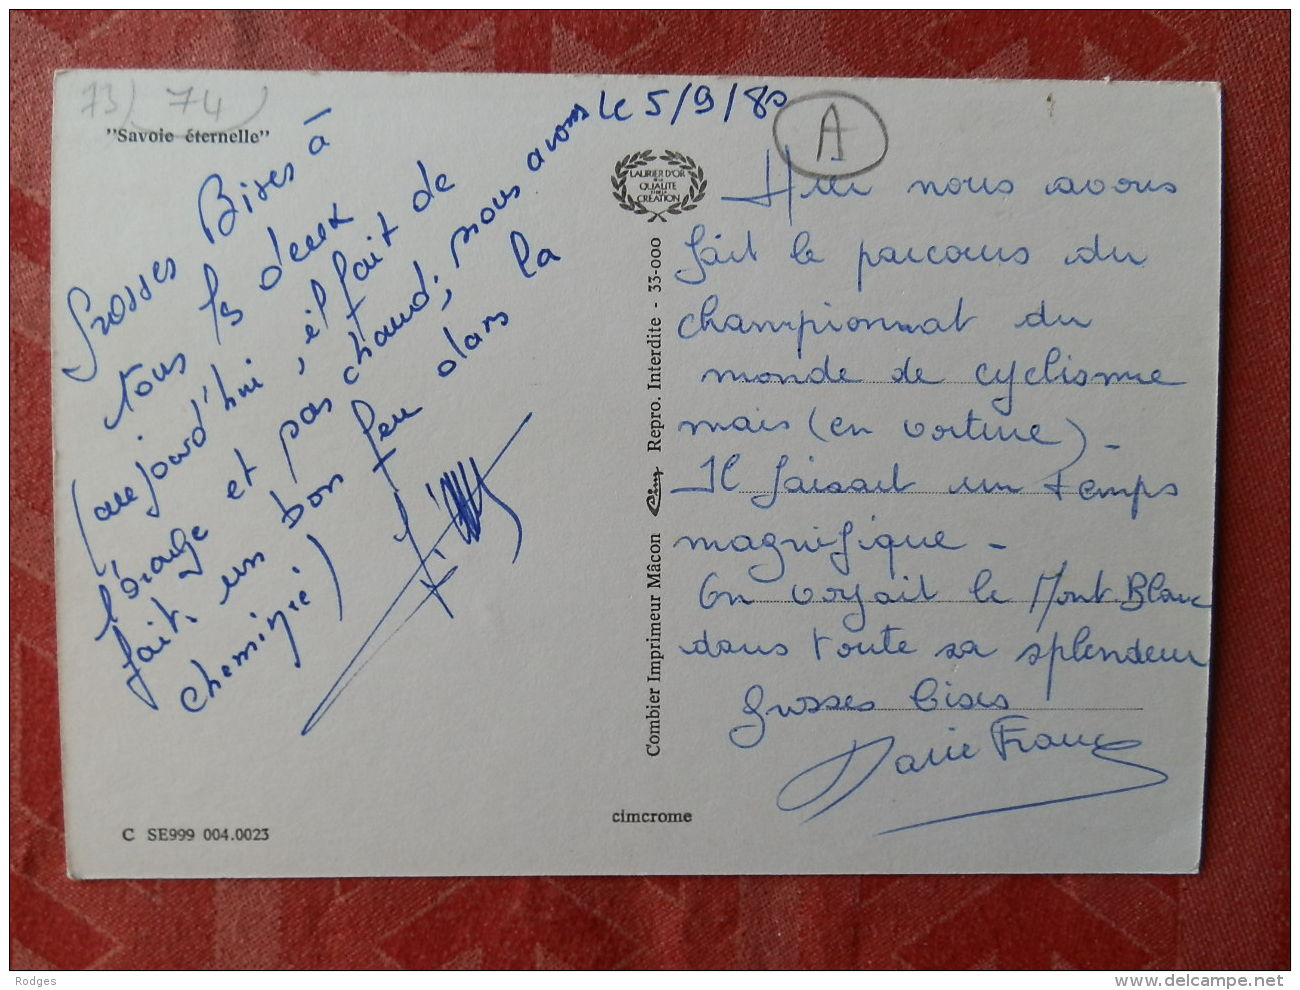 73/74
"Savoie éternelle"
le 5/9/80
A
LAURIER D'OR
DE LA
QUALITÉ
ET DE LA
CRÉATION
Grosses Bises à
tous les deux
(aujourd'hui, il fait de
l'orage et pas chaud, nous avons
fait un bon feu dans la
cheminée)
Hier nous avons
fait le parcours du
championnat du
monde de cyclisme
mais (en voiture) -
Il faisait un temps
magnifique -
On voyait le Mont Blanc
dans toute sa splendeur
Grosses bises
Marie France
Combier Imprimeur Mâcon Cim Repro. Interdite - 33-000
cimcrome
C SE999 004.0023
Rodges
www.delcampe.net